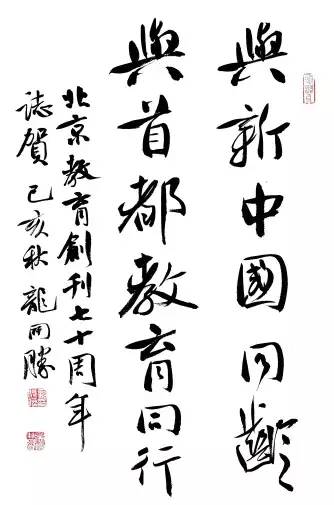 與新中國同齡
與首都教育同行
北京教育創刊七十周年
誌賀 己亥秋 龍開勝